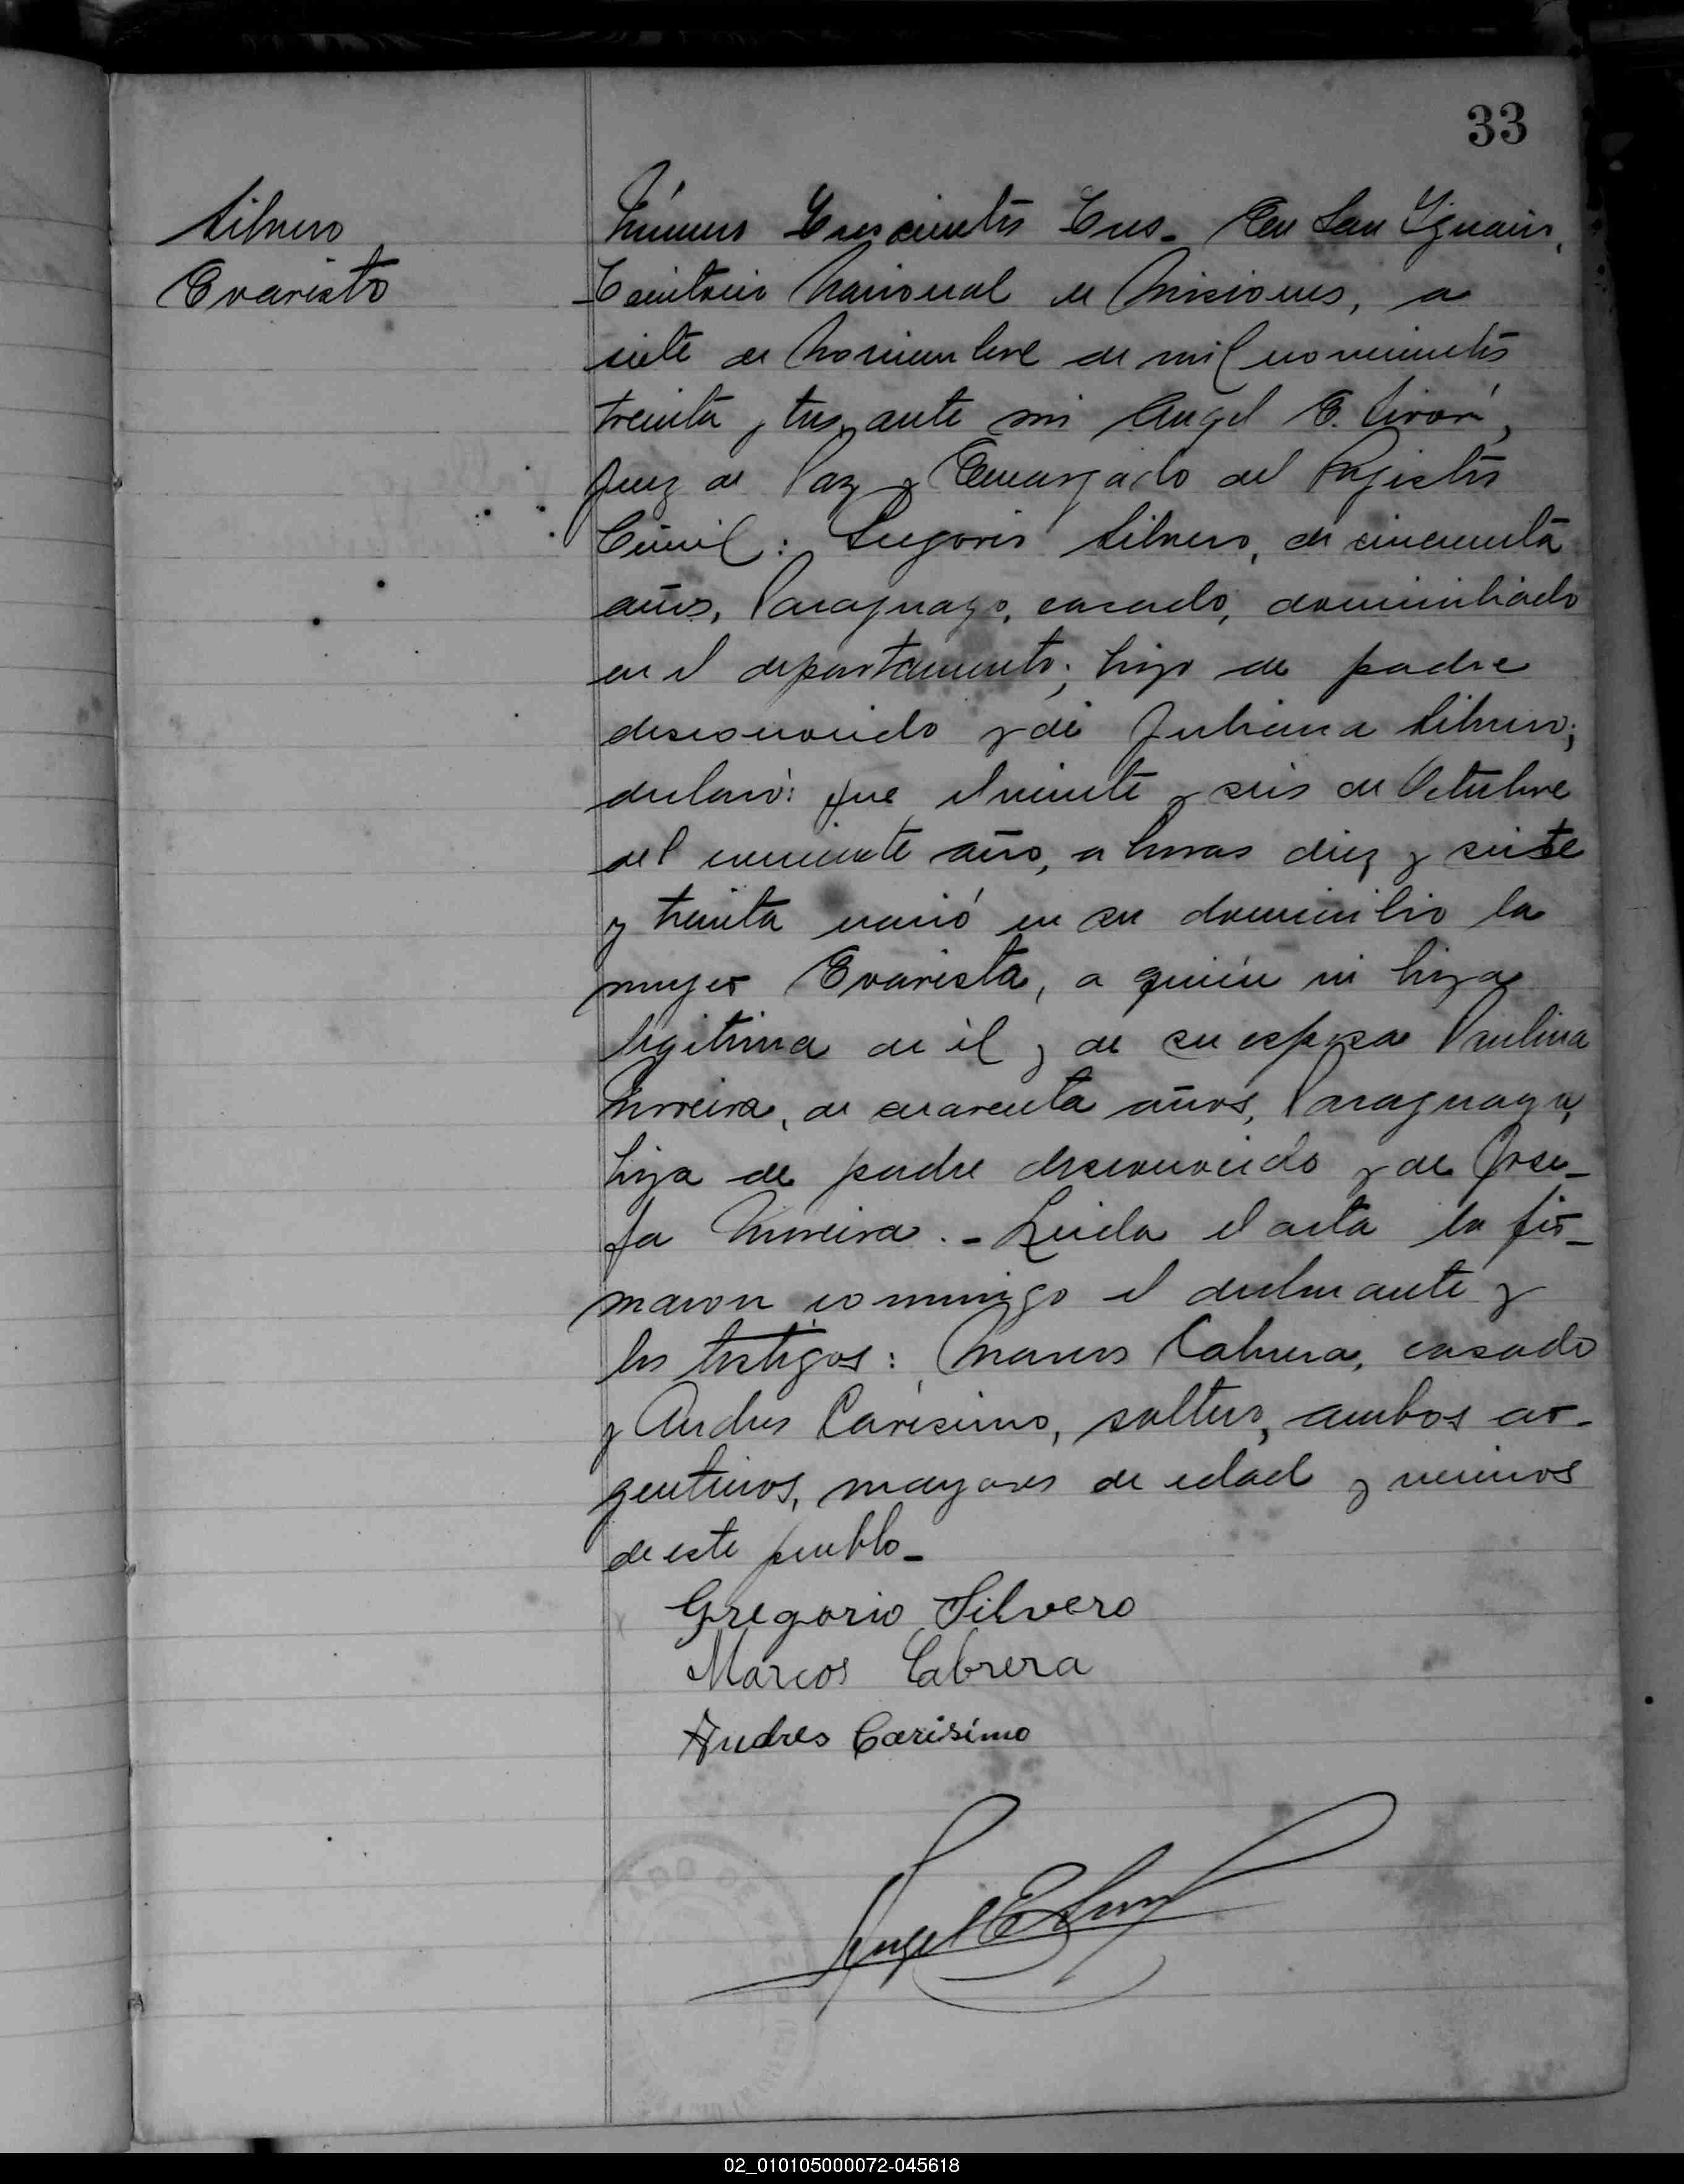 33
Silvero
Evaristo
Número Trescientos Tres. En San Ignacio,
Territorio Nacional de Misiones, a
siete de Noviembre de mil novecientos
treinta y tres, ante mi Angel E.
Juez de Paz y Encargado del Registro
Civil: Gregorio Silvero, de cincuenta
años, Paraguayo, casado, domiciliado
en el departamento; hijo de padre
desconocido y de Juliana Silvero;
declaró: que el veinte y seis de Octubre
del corriente año, a horas diez y siete
y treinta nació en su domicilio la
mujer Evarista, a quién vi hija
legitima de él y de su esposa Paulina
Moreira, de cuarenta años, Paraguaya,
hija de padre desconocido y de Jose-
fa Moreira. - Leida el acta la fir-
maron conmigo el declarante y
los testigos: Marcos Cabrera, casado
y Andres Carisimo, soltero, ambos ar-
gentinos, mayores de edad y vecinos
de este pueblo-
Gregorio Silvero
Marcos Cabrera
Andres Carisimo
Angel E
02_010105000072-045618